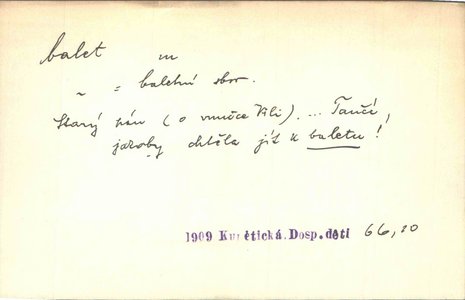 balet m
~ = baletní sbor.
Starý pán (o vnučce Lili). ... Tančí,
jakoby chtěla jít k baletu!
1909 Kunětická. Dosp. děti 66,20